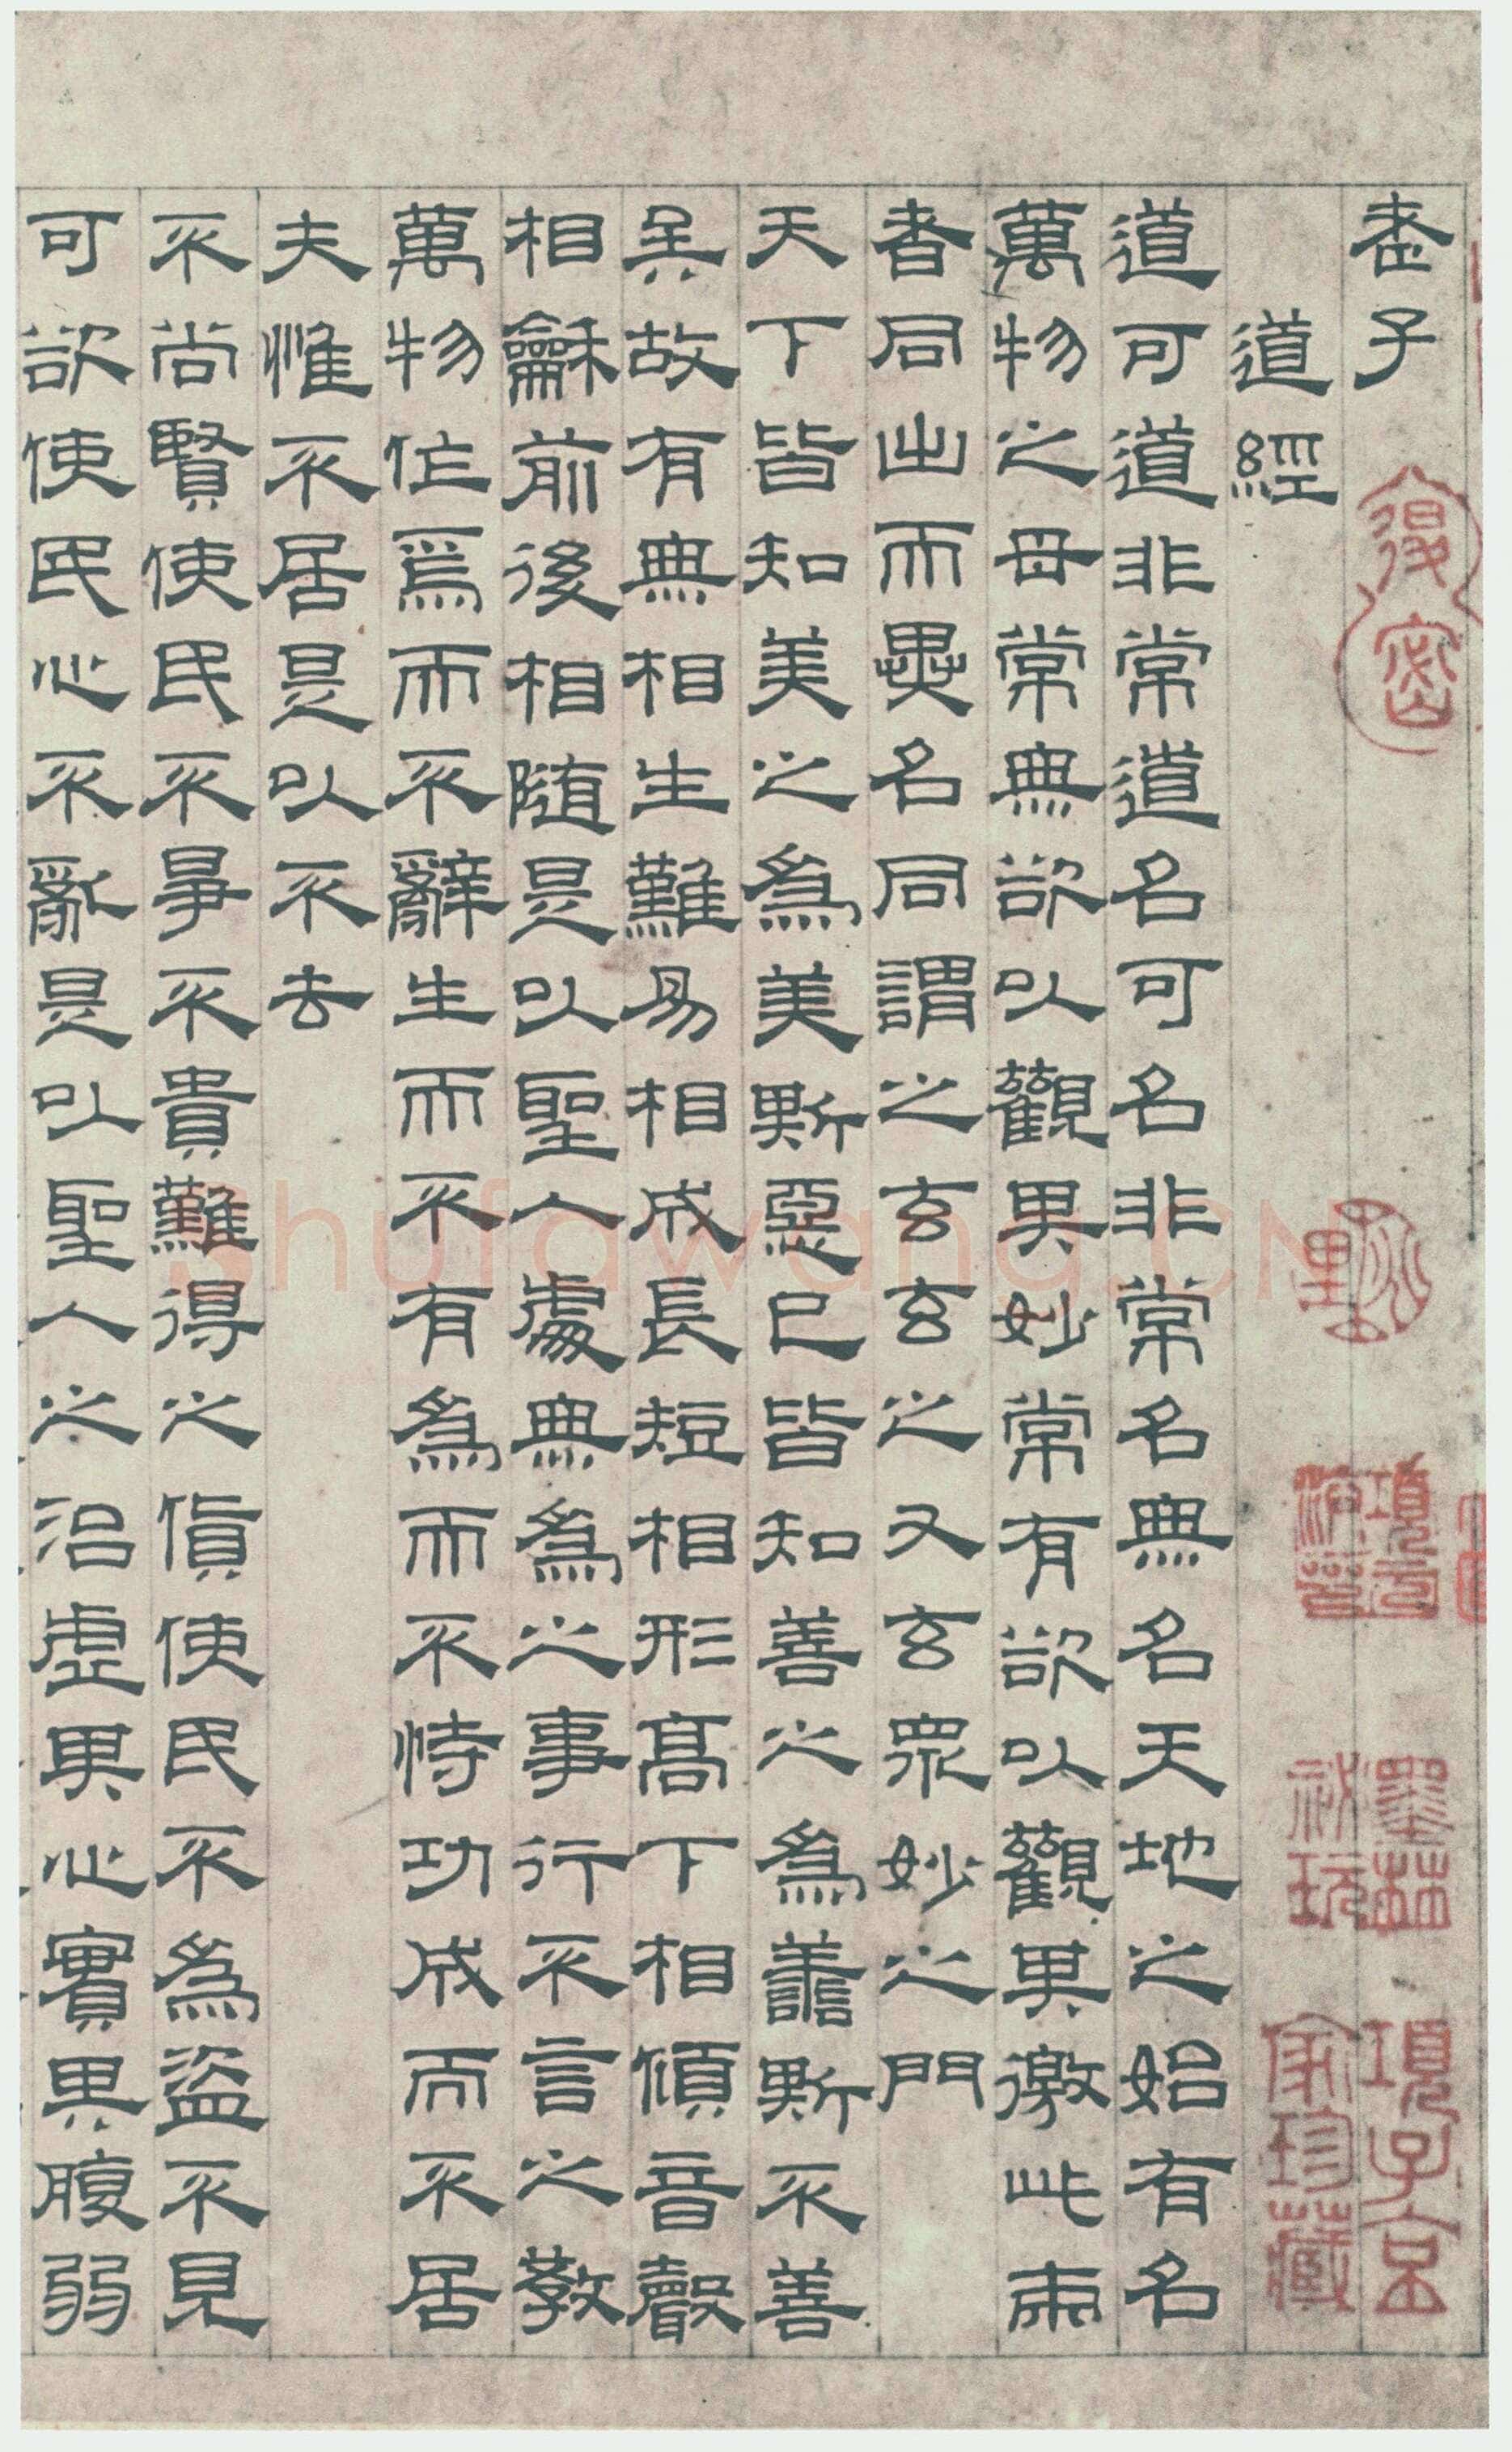 老子
道經
道可道非常道名可名非常名無名天地之始有名
萬物之母常無欲以觀其妙常有欲以觀其徼此兩
者同出而異名同謂之玄玄之又玄衆妙之門
天下皆知美之爲美斯惡已皆知善之爲善斯不善
矣故有無相生難易相成長短相形高下相傾音聲
相龢前後相隨是以聖人處無爲之事行不言之教
萬物作焉而不辭生而不有爲而不恃功成而不居
夫惟不居是以不去
不尚賢使民不爭不貴難得之貨使民不爲盜不見
可欲使民心不亂是以聖人之治虛其心實其腹弱
項子京
家珍藏
墨林
祕玩
項元
汴印
shufawang.CN